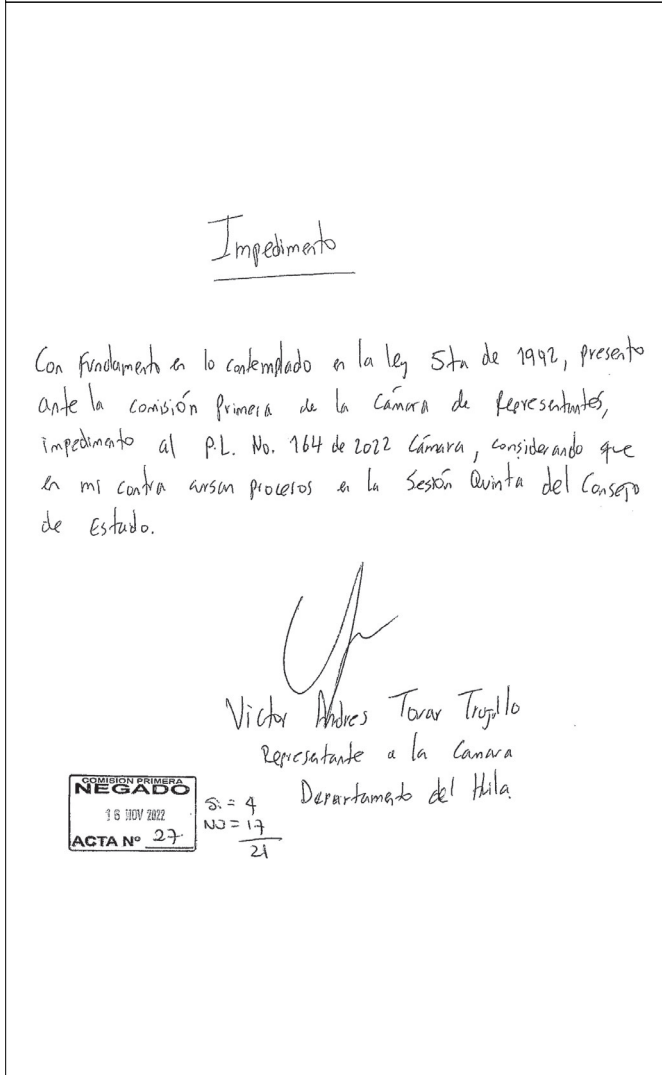 Impedimento
Con fundamento en lo contemplado en la ley 5ta de 1992, presento
ante la comisión Primera de la Cámara de Representantes,
impedimento al P.L. No. 164 de 2022 Cámara, considerando que
en mi contra cursan procesos en la Sesión Quinta del Consejo
de Estado.
Victor Andres Tovar Trujillo
Representante a la Camara
Departamento del Huila.
COMISION PRIMERA
NEGADO
16 NOV 2022
ACTA Nº 27
Si = 4
NO = 17
21